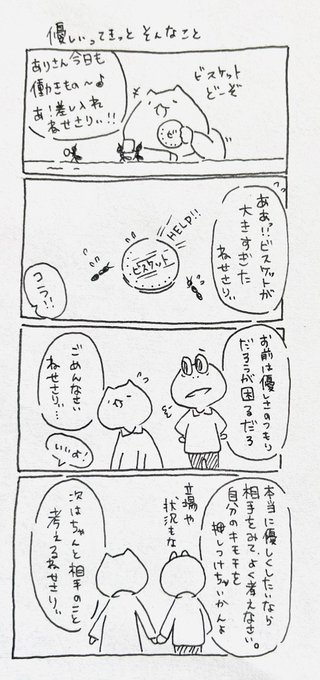 優しいってきっと そんなこと
ありさん今日も
働きもの〜♪
あ!差し入れ
ねせさりぃ!!
ビスケット
どーぞ
ビ
ああ!?ビスケットが
大きすぎた
ねせさりぃ
HELP!!
ビスケット
コラっ!!
お前は優しさのつもり
だろうが困るだろ
ごめんなさい
ねせさりぃ…
いいよ!
本当に優しくしたいなら
相手をみて、よく考えなさい。
自分のキモチを
押しつけちゃいかんよ
立場や
状況もな
次はちゃんと相手のこと
考えるねせさりぃ